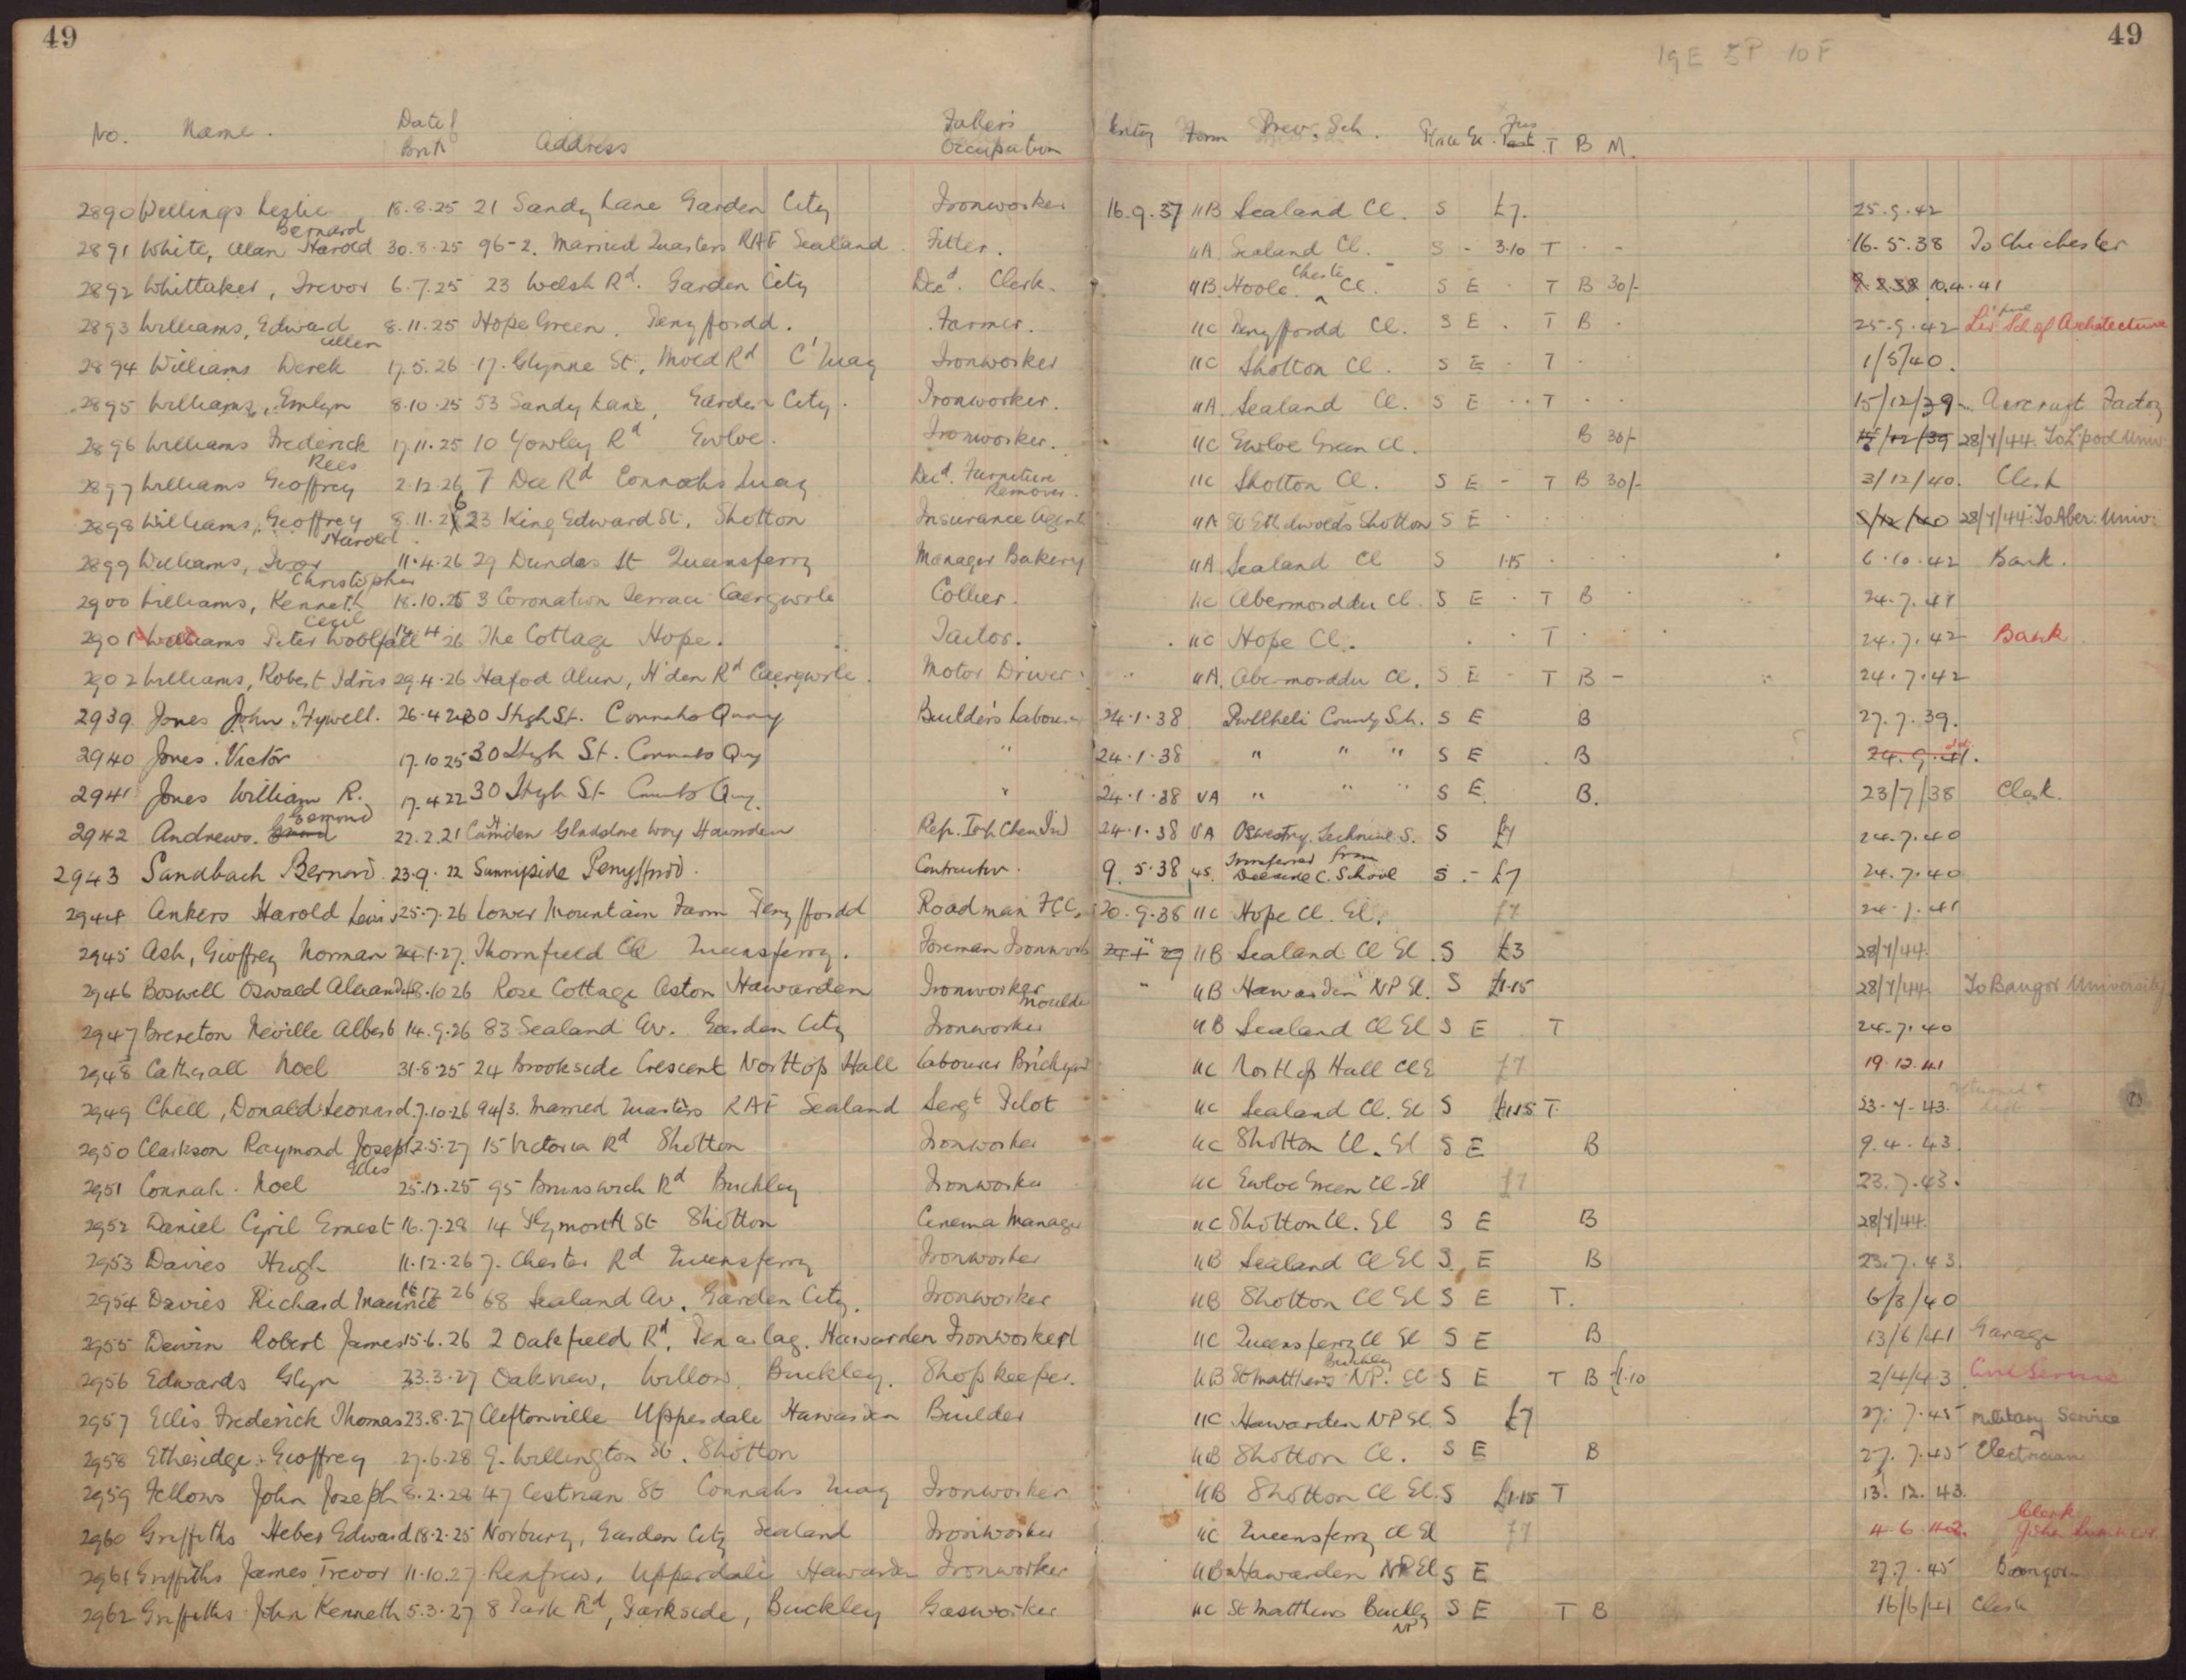 49 49
19E 5P 10F
No. Name. Date of Birth Address Father's Occupation Entry Form Prev. Sch. Place Ex. Fees T B M.
2890 Leslie 18.8.25 21 Sandy Lane Garden City Ironworker 16.9.37 11B Sealand Cl. S £7. 25.9.42
2891 White, Alan Harold Bernard 30.8.25 96-2. Married Quarters RAF Sealand Fitter. 11A Sealand Cl. S - 3.10 T 16.5.38 To Chichester
2892 Whittaker, Trevor 6.7.25 23 Welsh Rd. Garden City Decd. Clerk. 11B Hoole Chester Cl. S E T B 30/- 10.4.41
2893 Williams, Edward 8.11.25 Hope Green, Penyffordd. Farmer. 11C Penyffordd Cl. S E T B 25.9.42 L'pool Sch of Architecture
2894 Williams Derek Allen 17.5.26 17. Glynne St, Mold Rd C'Quay Ironworker 11C Shotton Cl. S E T 1/5/40.
2895 Williams, Emlyn 8.10.25 53 Sandy Lane, Garden City. Ironworker. 11A Sealand Cl. S E T 15/12/39 Aircraft Factory
2896 Williams Frederick 17.11.25 10 Yowley Rd Ewloe. Ironworker. 11C Ewloe Green Cl. B 30/- 15/12/39 28/7/44. To L'pool Univ:
2897 Williams Geoffrey Rees 2.12.26 7 Dee Rd Connahs Quay Decd. Furniture Remover. 11C Shotton Cl. S E - T B 30/- 3/12/40. Clerk
2898 Williams, Geoffrey 8.11.26 23 King Edward St, Shotton Insurance Agent 11A St Ethelwolds Shotton S E 3/12/40 28/7/44. To Aber: Univ:
2899 Williams, Ivor Harold 11.4.26 29 Dundas St Queensferry Manager Bakery 11A Sealand Cl S 1.15 6.10.42 Bank.
2900 Williams, Kenneth Christopher 18.10.25 3 Coronation Terrace Caergwrle Collier. 11C Abermorddu Cl. S E T B 24.7.41
2901 Williams Peter Woolfall Cecil 14.4.26 The Cottage Hope. Tailor. 11C Hope Cl. T 24.7.42 Bank
2902 Williams, Robert Idris 29.4.26 Hafod Alun, H'den Rd Caergwrle. Motor Driver 11A Abermorddu Cl. S E - T B - 24.7.42
2939 Jones John Hywell. 26.4.24 30 High St. Connahs Quay Builder's Labourer 24.1.38 Pwllheli County Sch. S E B 27.7.39.
2940 Jones. Victor 17.10.25 30 High St. Connahs Qay " 24.1.38 " " " S E B 24.9.41.
2941 Jones William R. 17.4.22 30 High St Connahs Qay. " 24.1.38 VA " " " S E B. 23/7/38 Clerk.
2942 Andrews. Esmond 22.2.21 Camden Gladstone Way Hawarden Rep. Imp. Chem Ind 24.1.38 VA Oswestry. Technical S. S £7 24.7.40
2943 Sandbach Bernard 23.9.22 Sunnyside Penyffordd. Contractor. 9.5.38 4S. Transferred from Deeside C. School S. - £7 24.7.40
2944 Ankers Harold Lewis 25.7.26 Lower Mountain Farm Penyffordd Roadman FCC. 20.9.38 11C Hope Cl. El. £7 24.7.41
2945 Ash, Geoffrey Norman 24.1.27. Thornfield Queensferry. Foreman Ironwork 11B Sealand Cl El. S £3 28/7/44.
2946 Boswell Oswald Alexander 8.10.26 Rose Cottage Aston Hawarden Ironworker Moulder " 11B Hawarden NP El. S £1.15 28/7/44. To Bangor University
2947 Brereton Neville Albert 14.9.26 83 Sealand Av. Garden City Ironworker 11B Sealand Cl El S E T 24.7.40
2948 Cathrall Noel 31.8.25 24 Brookside Crescent Northop Hall Labourer Brickyard 11C Northop Hall Cl E £7 19.12.41
2949 Chell, Donald Leonard. 7.10.26 94/3. Married Quarters RAF Sealand Sergt Pilot 11C Sealand Cl. El S £1.15 T. 23.7.43.
2950 Clarkson Raymond Joseph 12.5.27 15 Victoria Rd Shotton Ironworker 11C Shotton Cl. El S E B 9.4.43.
2951 Connah. Noel Ellis 25.12.25 95 Brunswick Rd Buckley Ironworker 11C Ewloe Green Cl-El £7 23.7.43.
2952 Daniel Cyril Ernest 16.7.28 14 Plymouth St Shotton Cinema Manager 11C Shotton Cl. El S E B 28/7/44.
2953 Davies Hugh 11.12.26 7. Chester Rd Queensferry Ironworker 11B Sealand Cl El S. E B 23.7.43.
2954 Davies Richard Maurice 16.12.26 68 Sealand Av. Garden City. Ironworker 11B Shotton Cl El S E T. 6/3/40
2955 Dewin Robert James 15.6.26 2 Oakfield Rd, Hawarden Ironworker 11C Queensferry Cl El S E B 13/6/41 Garage
2956 Edwards Glyn 23.3.27 Oakview, Willow, Buckley. Shopkeeper. 11B St Matthew's Buckley NP. El S E T B £1.10 2/4/43 Civil Service
2957 Ellis Frederick Thomas 23.8.27 Cliftonville Upperdale Hawarden Builder 11C Hawarden NP El. S £7 27.7.45 Military Service
2958 Etheridge. Geoffrey 27.6.28 9. Wellington St. Shotton 11B Shotton Cl. S E B 27.7.45 Electrician
2959 Fellows John Joseph 8.2.28 47 Cestrian St Connahs Quay Ironworker 11B Shotton Cl El. S £1.15 T 13.12.43.
2960 Griffiths Heber Edward 18.2.25 Norbury, Garden City Sealand Ironworker 11C Queensferry Cl El £7 4.6.42. Clerk John Summers.
2961 Griffiths James Trevor 11.10.27 Renfrew, Upperdale Hawarden Ironworker 11B Hawarden NP El S E 27.7.45 Bangor
2962 Griffiths John Kenneth 5.3.27 8 Park Rd, Parkside, Buckley Gasworker 11C St Matthews Buckley NP S E T B 16/6/41 Clerk